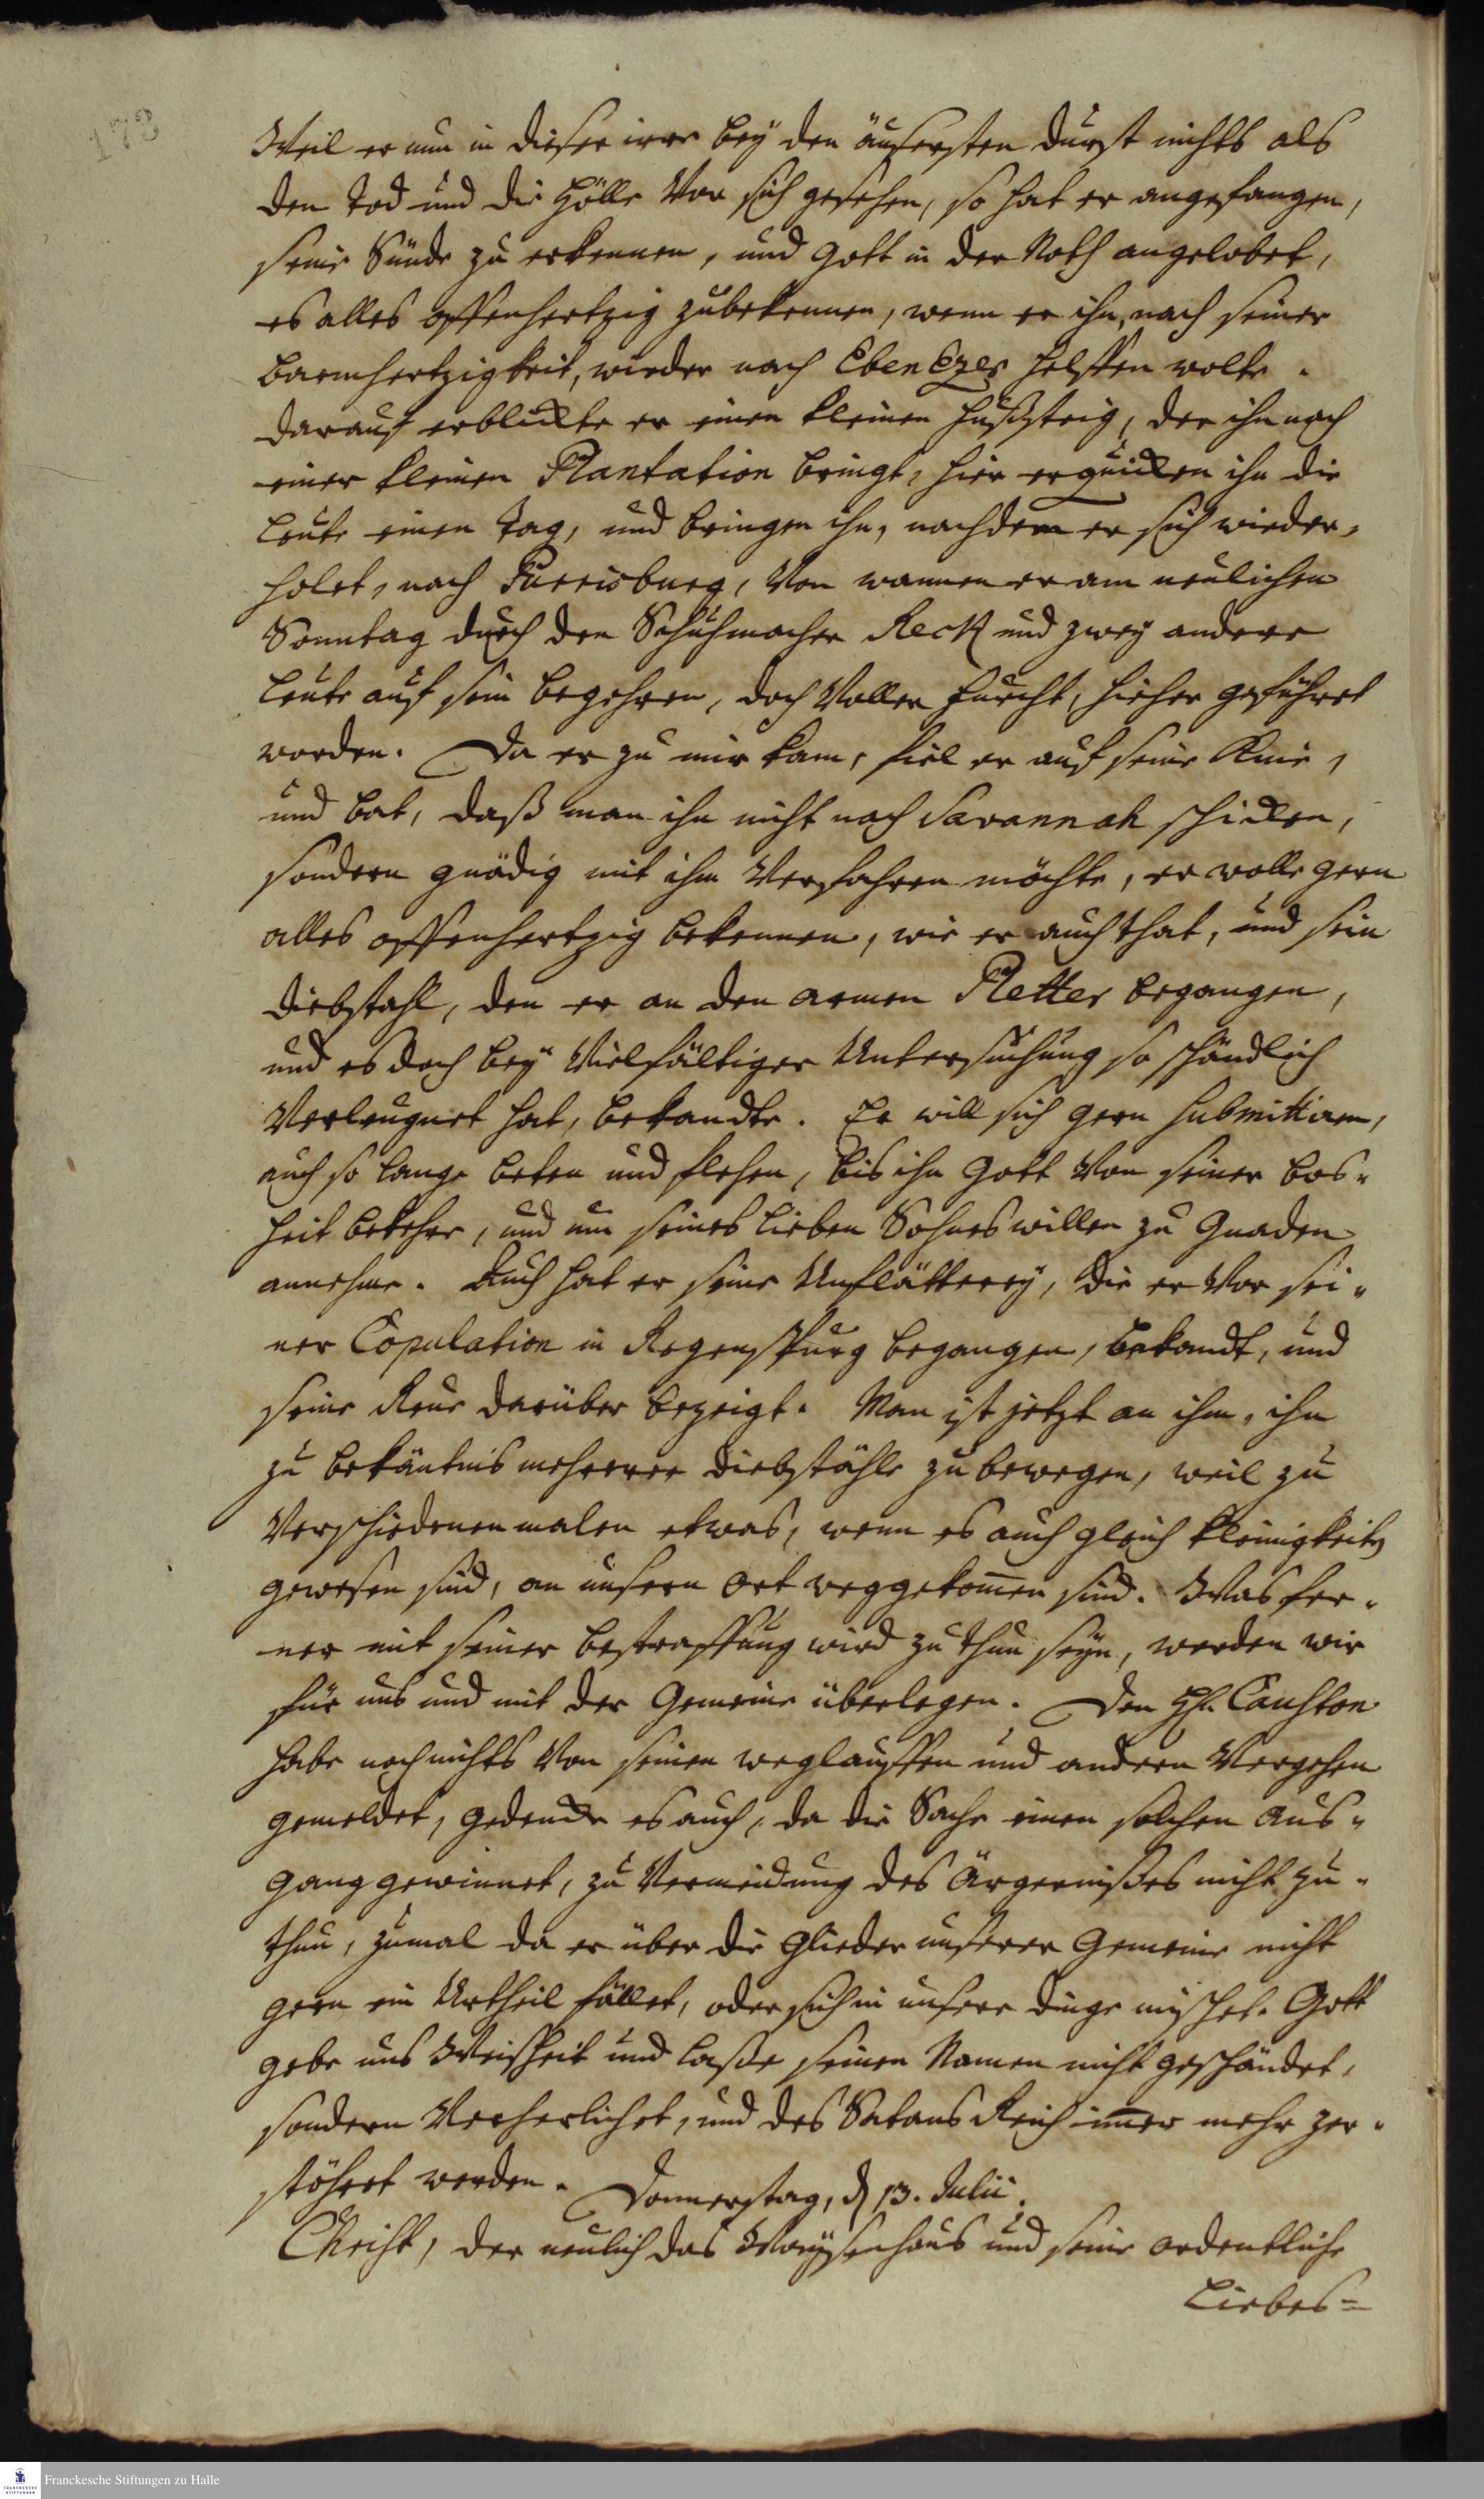 173
Weil er nun in dieser irre bey den äusersten Durst nichts als
den Tod und die Hölle vor sich gesehen, so hat er angefangen,
seine Sünde zu erkennen, und Gott in der Noth angelobet,
es alles offenhertzig zubekennen, wenn er ihn, nach seiner
Barmhertzigkeit, wieder nach EbenEzer helffen wolte.
Darauf erblickte er einen kleinen Fußsteig, der ihn nach
einer kleinen Plantation bringt, hier erquicken ihn die
Leute einen Tag, und bringen ihn, nachdem er sich wieder,
holet, nach Purrisburg, Von wannen er am neulichen
Sonntag durch den Schuhmacher Reck und zwey andere
Leute auf sein Begehren, doch Voller Furcht, hieher geführet
worden. Da er zu mir kam, fiel er auf seine Knie,
und bat, daß man ihn nicht nach Savannah schicken,
sondern gnädig mit ihm Verfahren möchte, er wolle gern
alles offenhertzig bekennen, wie er auch that, und sein
Diebstahl, den er an den armen Pletter begangen,
und es doch bey Vielfältiger Untersuchung so schändlich
Verleugnet hat, bekandte. Er will sich gern submittiren,
auch so lange beten und flehen, bis ihn Gott Von seiner Bos-
heit bekehre, und um seines lieben Sohnes willen zu Gnaden
annehme. Auch hat er seine Unflätterey, die er Vor sei-
ner Copulation in Regenspurg begangen, bekandt, und
seine Reue darüber bezeigt. Man ist jetzt an ihm, ihn
zu Bekäntnis mehrerer Diebstähle zu bewegen, weil zu
Verschiedenenmalen etwas, wenn es auch gleich Kleinigkeiten
gewesen sind, an unserm Ort weggekommen sind. Was fer-
ner mit seiner Bestraffung wird zu thun seyn, werden wir
für uns und mit der Gemeine überlegen. Den Hh. Causton
habe noch nichts Von seinen weglauffen und andern Vergehen
gemeldet, gedencke es auch, da die Sache einen solchen Aus-
gang gewinnet, zu Vermeidung des Ärgernißes nicht zu-
thun, zumal da er über die Glieder unserer Gemeine nicht
gern ein Urtheil fället, oder sich in unsere Dinge mischet. Gott
gebe uns Weisheit und laße seinen Namen nicht geschändet,
sondern Verherlichet, und des Satans Reich immer mehr zer-
stöhret werden. Donnerstag, d 13. Julii.
Christ, der neulich das Waysenhaus und seine ordentliche
Liebes=
Franckesche Stiftungen zu Halle
FRANCKESCHE
STIFTUNGEN